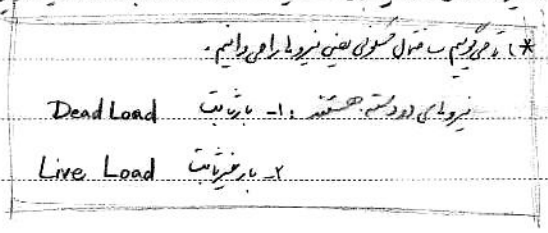 * تا می‌گوییم ساختمان مسکونی یعنی نیروها را می‌دانیم.
نیروهای دو دسته هستند: ۱- بار ثابت Dead Load
۲- بار غیر ثابت Live Load